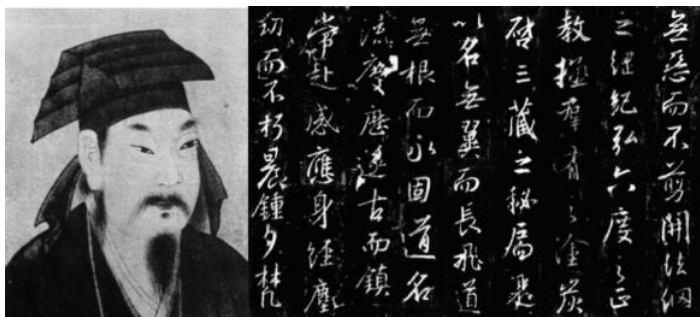 無惡而不剪開法網
之綱紀弘六度之正
教拯羣有之塗炭
啓三藏之秘扃是
以名無翼而長飛道
無根而永固道名
流慶歷遂古而鎮
常赴感應身經塵
劫而不朽晨鍾夕梵